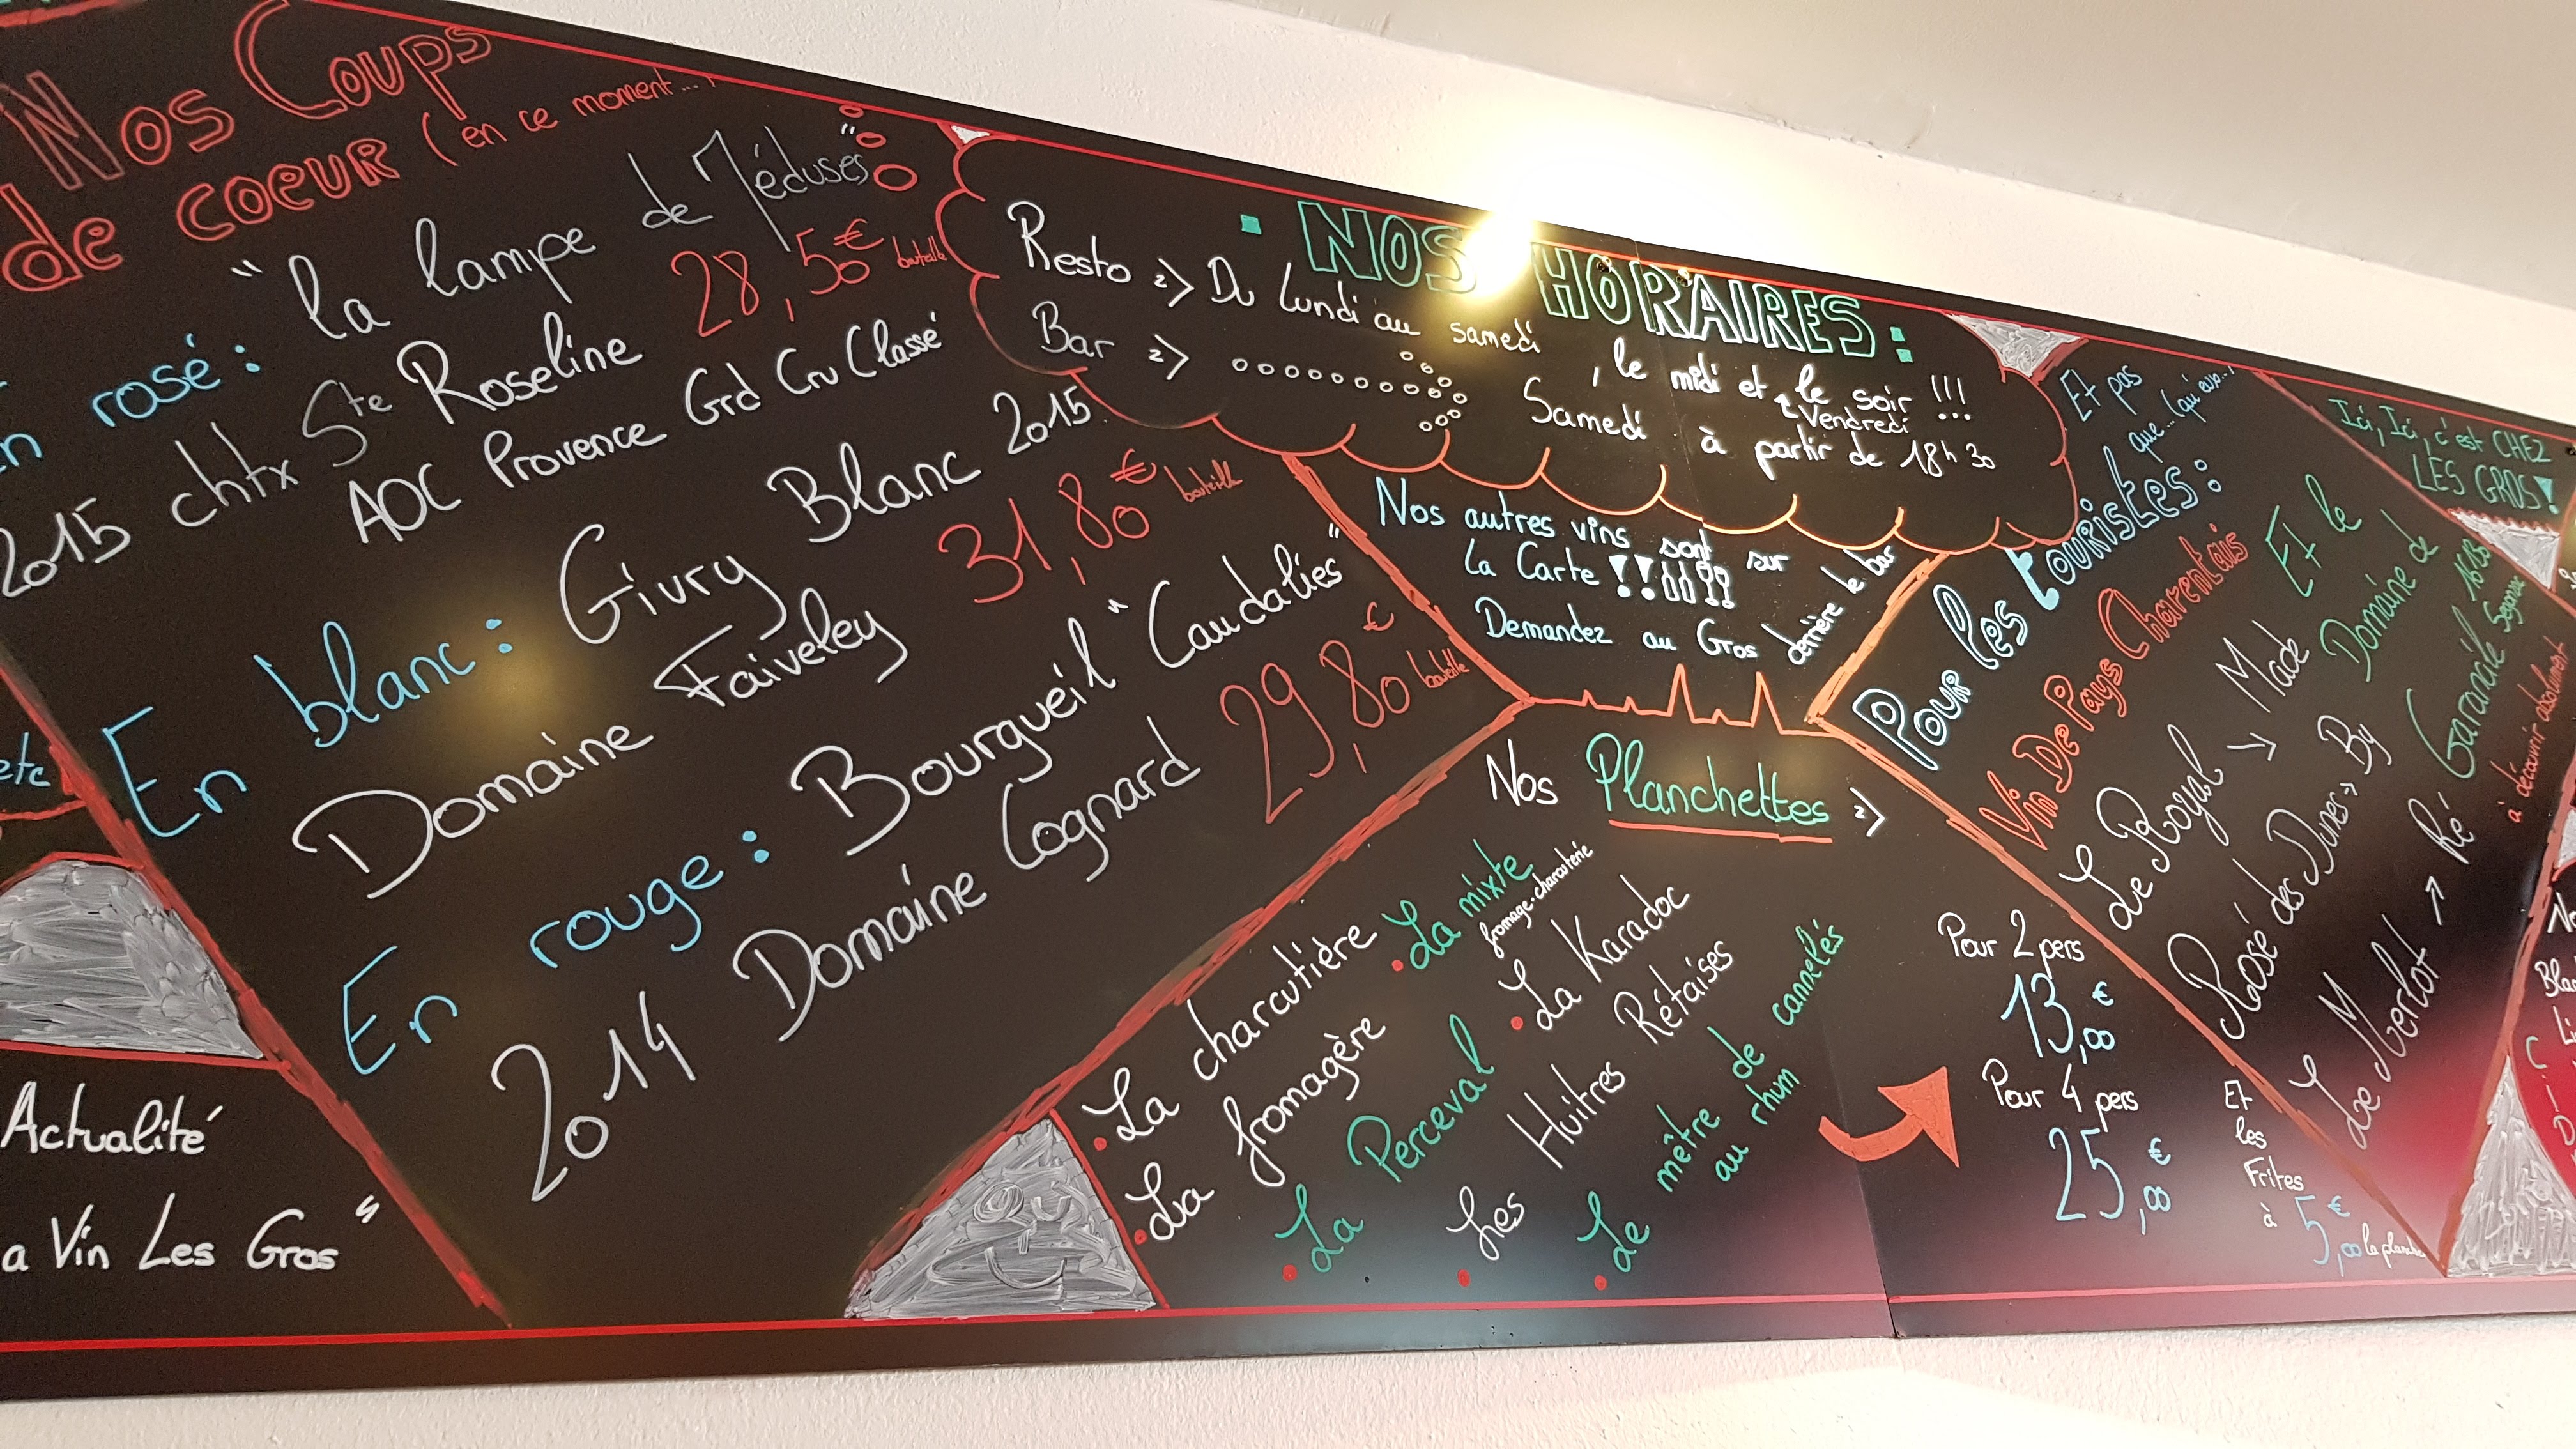 Nos Coups
de coeur (en ce moment...)
En rosé : "la lampe de Méduses"
2015 chtx Ste Roseline 28,50€ bouteille
AOC Provence Grd Cru Classé
En blanc : Givry Blanc 2015
Domaine Faiveley 31,80€ bouteille
En rouge : Bourgueil "Caudalies"
2014 Domaine Cognard 29,80€ bouteille
etc
Actualité
a Vin Les Gros"
NOS HORAIRES :
Resto => Du Lundi au samedi, le midi et le soir !!!
Vendredi
Bar => Samedi à partir de 18h30
Nos autres vins sont sur
la Carte !!
Demandez au Gros derrière le bar
Nos Planchettes =>
• La charcutière
• La mixte
fromage-charcuterie
• La fromagère
• La Karadoc
• La Perceval
• Les Huitres Rétaises
• Le mêtre de cannelés
au rhum
Pour 2 pers
13,00€
Pour 4 pers
25,00€
Et
les
Frites
à
5,00€
Et pas
que...(qu'eux...)
Pour les touristes :
Vin De Pays Charentais
Le Royal → Made
Rosé des Dunes → By
Le Merlot → Ré
Et le
Domaine de
Garancile
à découvrir absolument
Ici, Ici, c'est CHEZ
LES GROS !